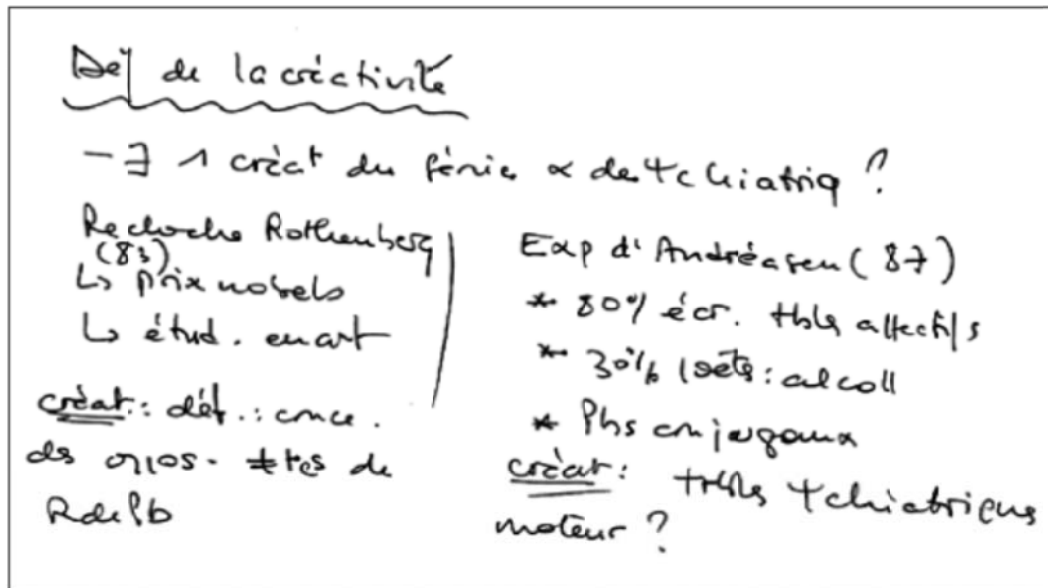 Déf de la créativité
- ∃ 1 créat du génie ∝ de Ψchiatriq ?
Recherche Rothenberg
(83)
↳ prix nobels
↳ étud. en art
créat : déf. : 
des ≠tes de
R de Pb
Exp d'Andréasen (87)
* 80% écr. tbls affectifs
* 30% : alcoll
* Pbs conjugaux
créat : trbls Ψchiatriques
moteur ?